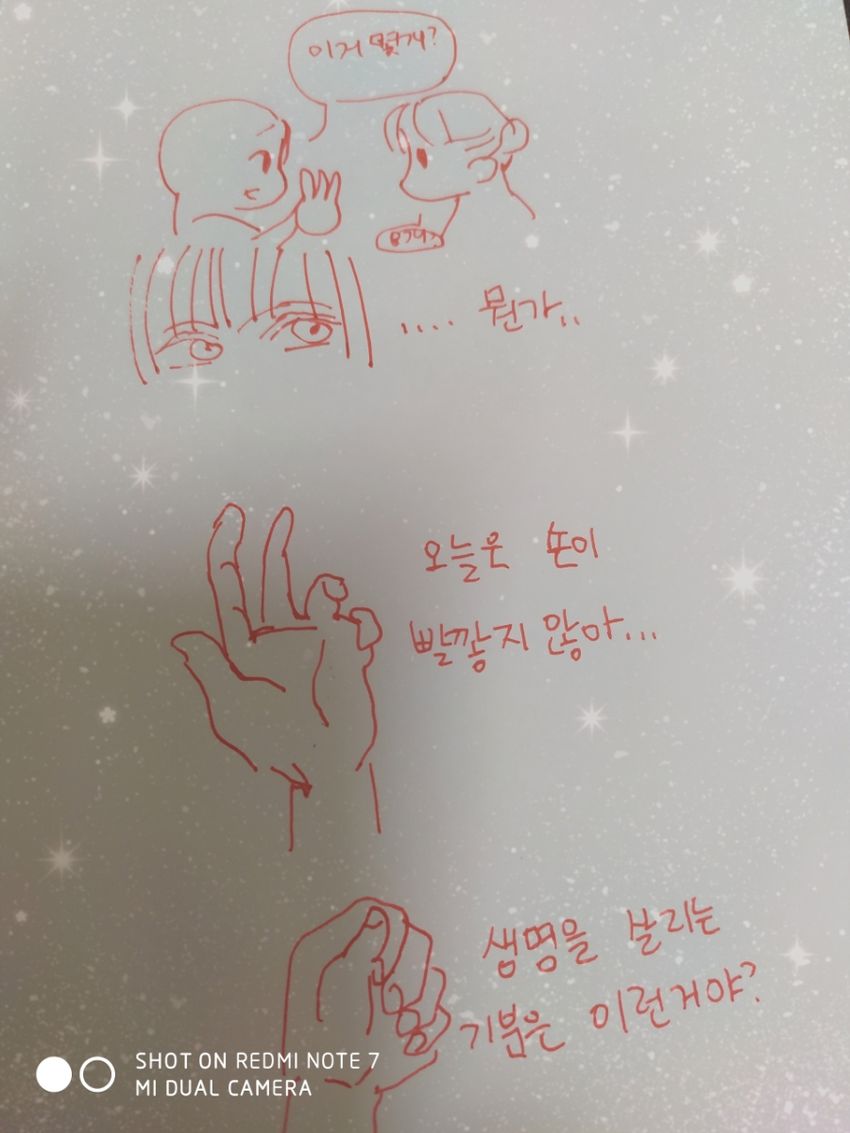 이거 몇개?
8개?
.... 뭔가..
오늘은 손이
빨갛지 않아...
생명을 살리는
기분은 이런거야?
SHOT ON REDMI NOTE 7
MI DUAL CAMERA